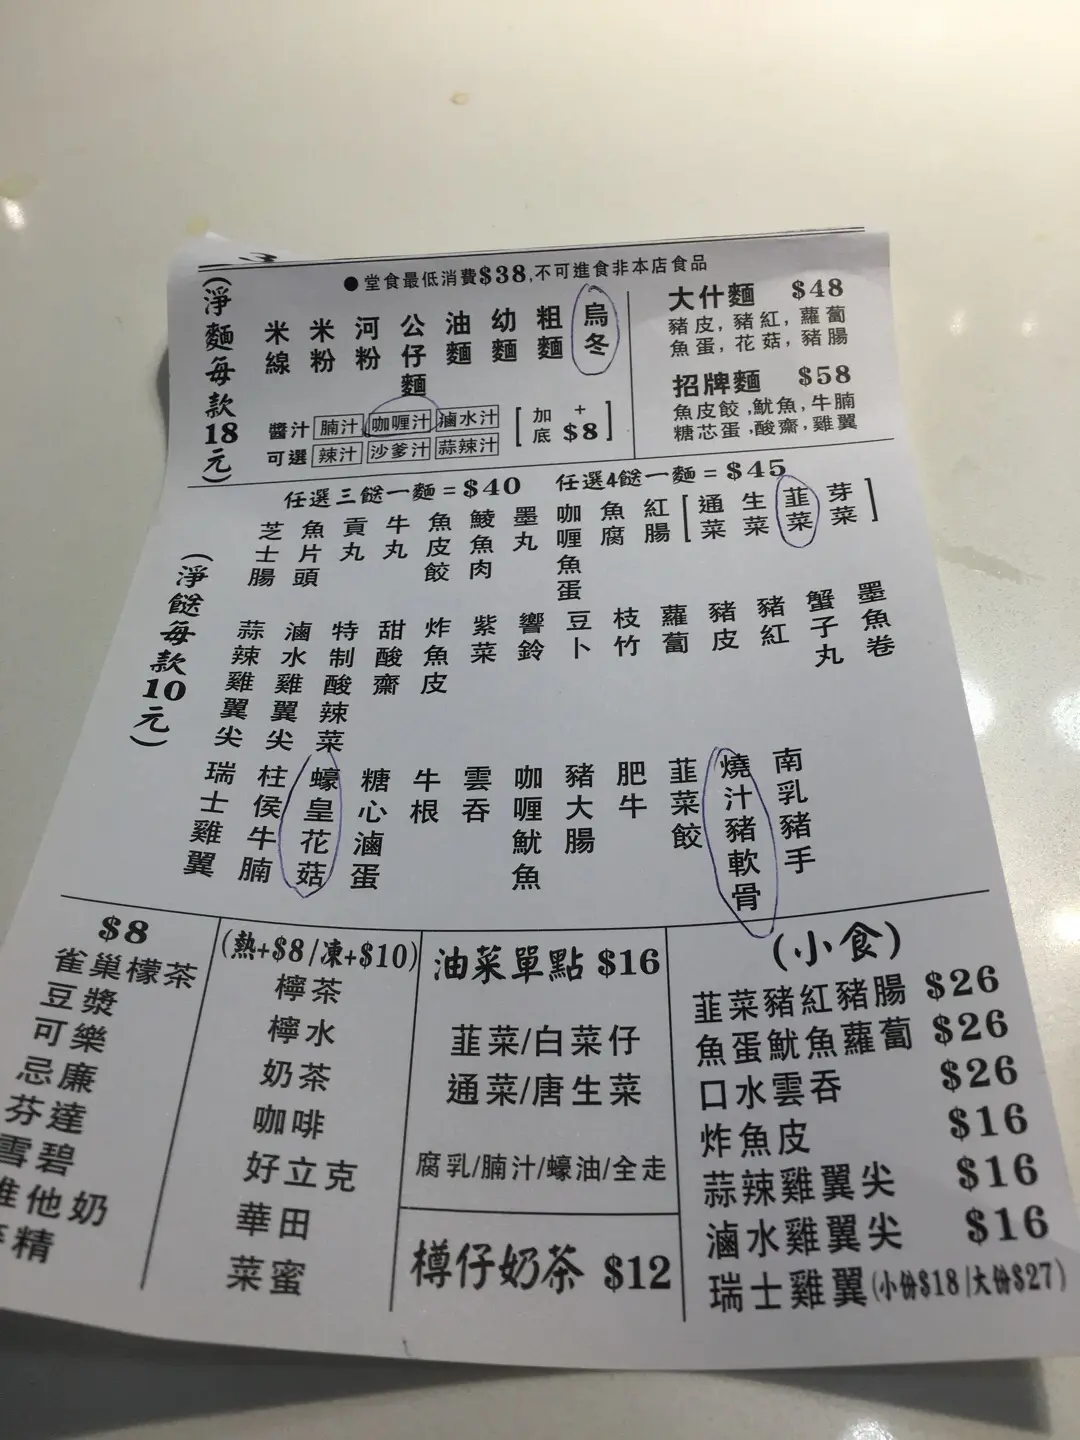 ●堂食最低消費$38,不可進食非本店食品
(淨麵每款18元)
米線
米粉
河粉
公仔麵
油麵
幼麵
粗麵
烏冬
醬汁可選
腩汁 咖喱汁 滷水汁
辣汁 沙爹汁 蒜辣汁
[加底 +$8]
大什麵 $48
豬皮,豬紅,蘿蔔
魚蛋,花菇,豬腸
招牌麵 $58
魚皮餃,魷魚,牛腩
糖芯蛋,酸齋,雞翼
任選三餸一麵=$40 任選4餸一麵=$45
(淨餸每款10元)
芝士腸
魚片頭
貢丸
牛丸
魚皮餃
鯪魚肉
墨丸
咖喱魚蛋
魚腐
紅腸
[通菜
生菜
韮菜
芽菜]
蒜辣雞翼尖
滷水雞翼尖
特制酸辣菜
甜酸齋
炸魚皮
紫菜
響鈴
豆卜
枝竹
蘿蔔
豬皮
豬紅
蟹子丸
墨魚卷
瑞士雞翼
柱侯牛腩
蠔皇花菇
糖心滷蛋
牛根
雲吞
咖喱魷魚
豬大腸
肥牛
韮菜餃
燒汁豬軟骨
南乳豬手
$8
雀巢檬茶
豆漿
可樂
忌廉
芬達
雪碧
維他奶
精
(熱+$8/凍+$10)
檸茶
檸水
奶茶
咖啡
好立克
華田
菜蜜
油菜單點 $16
韮菜/白菜仔
通菜/唐生菜
腐乳/腩汁/蠔油/全走
樽仔奶茶 $12
(小食)
韮菜豬紅豬腸 $26
魚蛋魷魚蘿蔔 $26
口水雲吞 $26
炸魚皮 $16
蒜辣雞翼尖 $16
滷水雞翼尖 $16
瑞士雞翼(小份$18|大份$27)